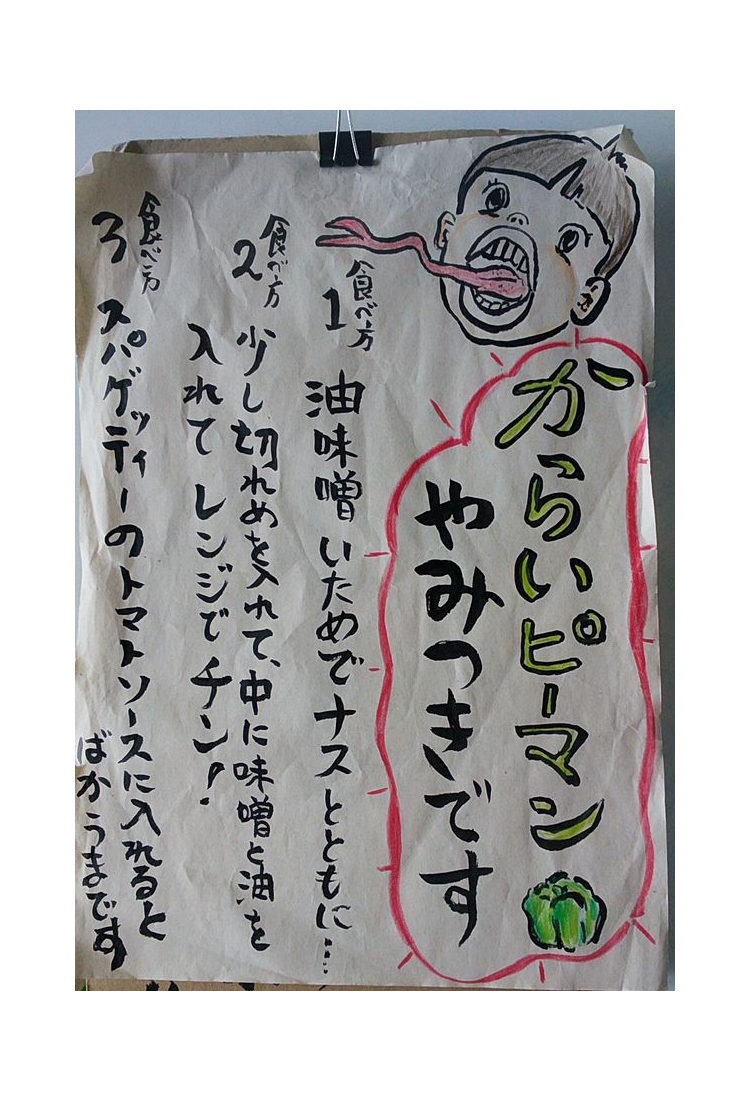 からいピーマン
やみつきです
食べ方
1
油味噌いためでナスとともに…
食べ方
2
少し切れめを入れて、中に味噌と油を
入れてレンジでチン!
食べ方
3
スパゲッティーのトマトソースに入れると
ばかうまです